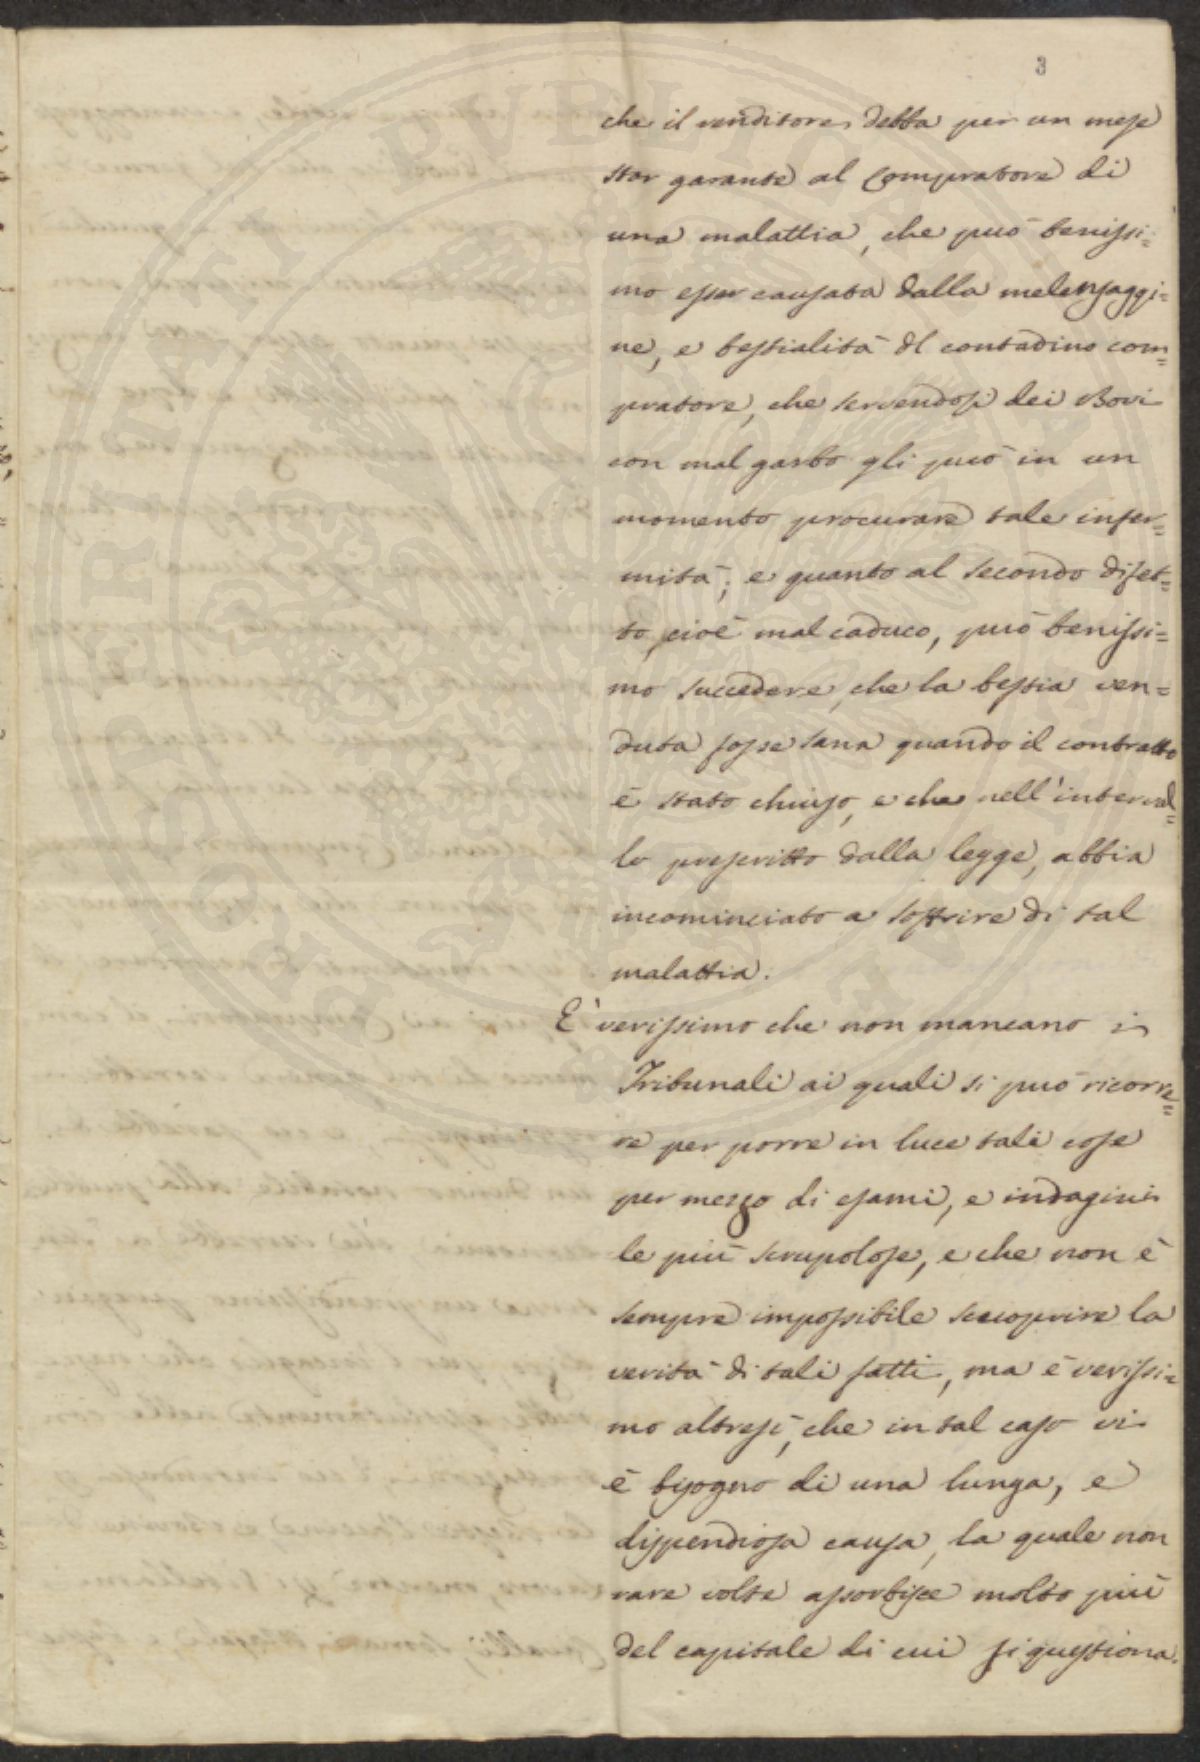 3
che il venditore debba per un mese
star garante al Compratore di
una malattia, che può benissi=
mo esser causata dalla melensaggi=
ne, e bestialità dl contadino com=
pratore, che servendosi dei Bovi
con mal garbo gli può in un
momento procurare tale infer=
mità; e quanto al secondo difet=
to, cioè mal caduco, può benissi=
mo succedere, che la bestia ven=
duta fosse sana quando il contratto
è stato chiuso, e che nell'interval=
lo prescritto dalla legge, abbia
incominciato a soffrire di tal
malattia.
E' verissimo che non mancano i
Tribunali ai quali si può ricorre=
re per porre in luce tali cose
per mezzo di esami, e indagini
le più scrupolose, e che non è
sempre impossibile scuoprire la
verità di tali fatti, ma è verissi=
mo altresì, che in tal caso vi
è bisogno di una lunga, e
dispendiosa causa, la quale non
rare volte assorbisce molto più
del capitale di cui si questiona.
PROSPERITATI PVBLICAE AVGENDAE